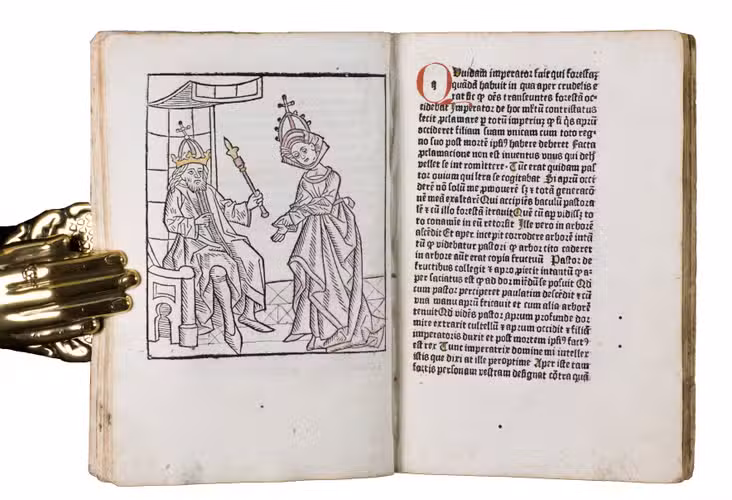 Quidam imperator fuit qui forestaꝝ
quãdã habuit in qua aper crudelis e
rat sic ꝙ oẽs transeuntes forestã oc⸗
cidebat Imperator de hoc mĩtũ contristatus
fecit ꝓclamare ꝑ totum imperiuꝫ ꝙ si ꝗs aprũ
occideret filiam suam vnicam cum toto reg⸗
no suo post mortẽ ipiꝰ habere deberet Facta
ꝓclamacione non est inuentus vnus qui
vellet se intromittere Tũc erat quidam pas
tor ouium qui infra se cogitabat Si aprũ occi
derẽ nõ solũ me ꝓmouerẽ sꝫ ⁊ totã generacõ
nẽ meã exaltarẽ Qui accipiẽs baculũ pastora
lẽ ⁊ cũ illo forestã itrauit Quẽ cũ aꝑ vidissꝫ to
to conamie in eũ retorsit Ille vero in arborẽ
ascẽdit Et aper incepit corrodere arborẽ intã
tũ ꝙ videbatur pastori ꝙ arbor cito caderet
in arbore aũt erat copia fructuũ Pastor de
fructibus collegit ⁊ apro ꝓiecit intantũ ꝙ a⸗
per saciatus est ꝙ ad dormiẽdũ se posuit Qd
cum pastor perciperet paulatim descẽdit ⁊ cũ
vna manu aprũ fricauit et cum alia arborẽ
tenuit Qd vidẽs pastor aprum profunde dor
mire extraxit cultellũ ⁊ aprum occidit ⁊ filiã
imperatoris duxit et post mortem ipiꝰ factꝰ
est rex Tunc imperatrix domine mi intellex
istis que dixi at ille peroptime Aper iste tam
fortis personam vestram designat cõtra quã